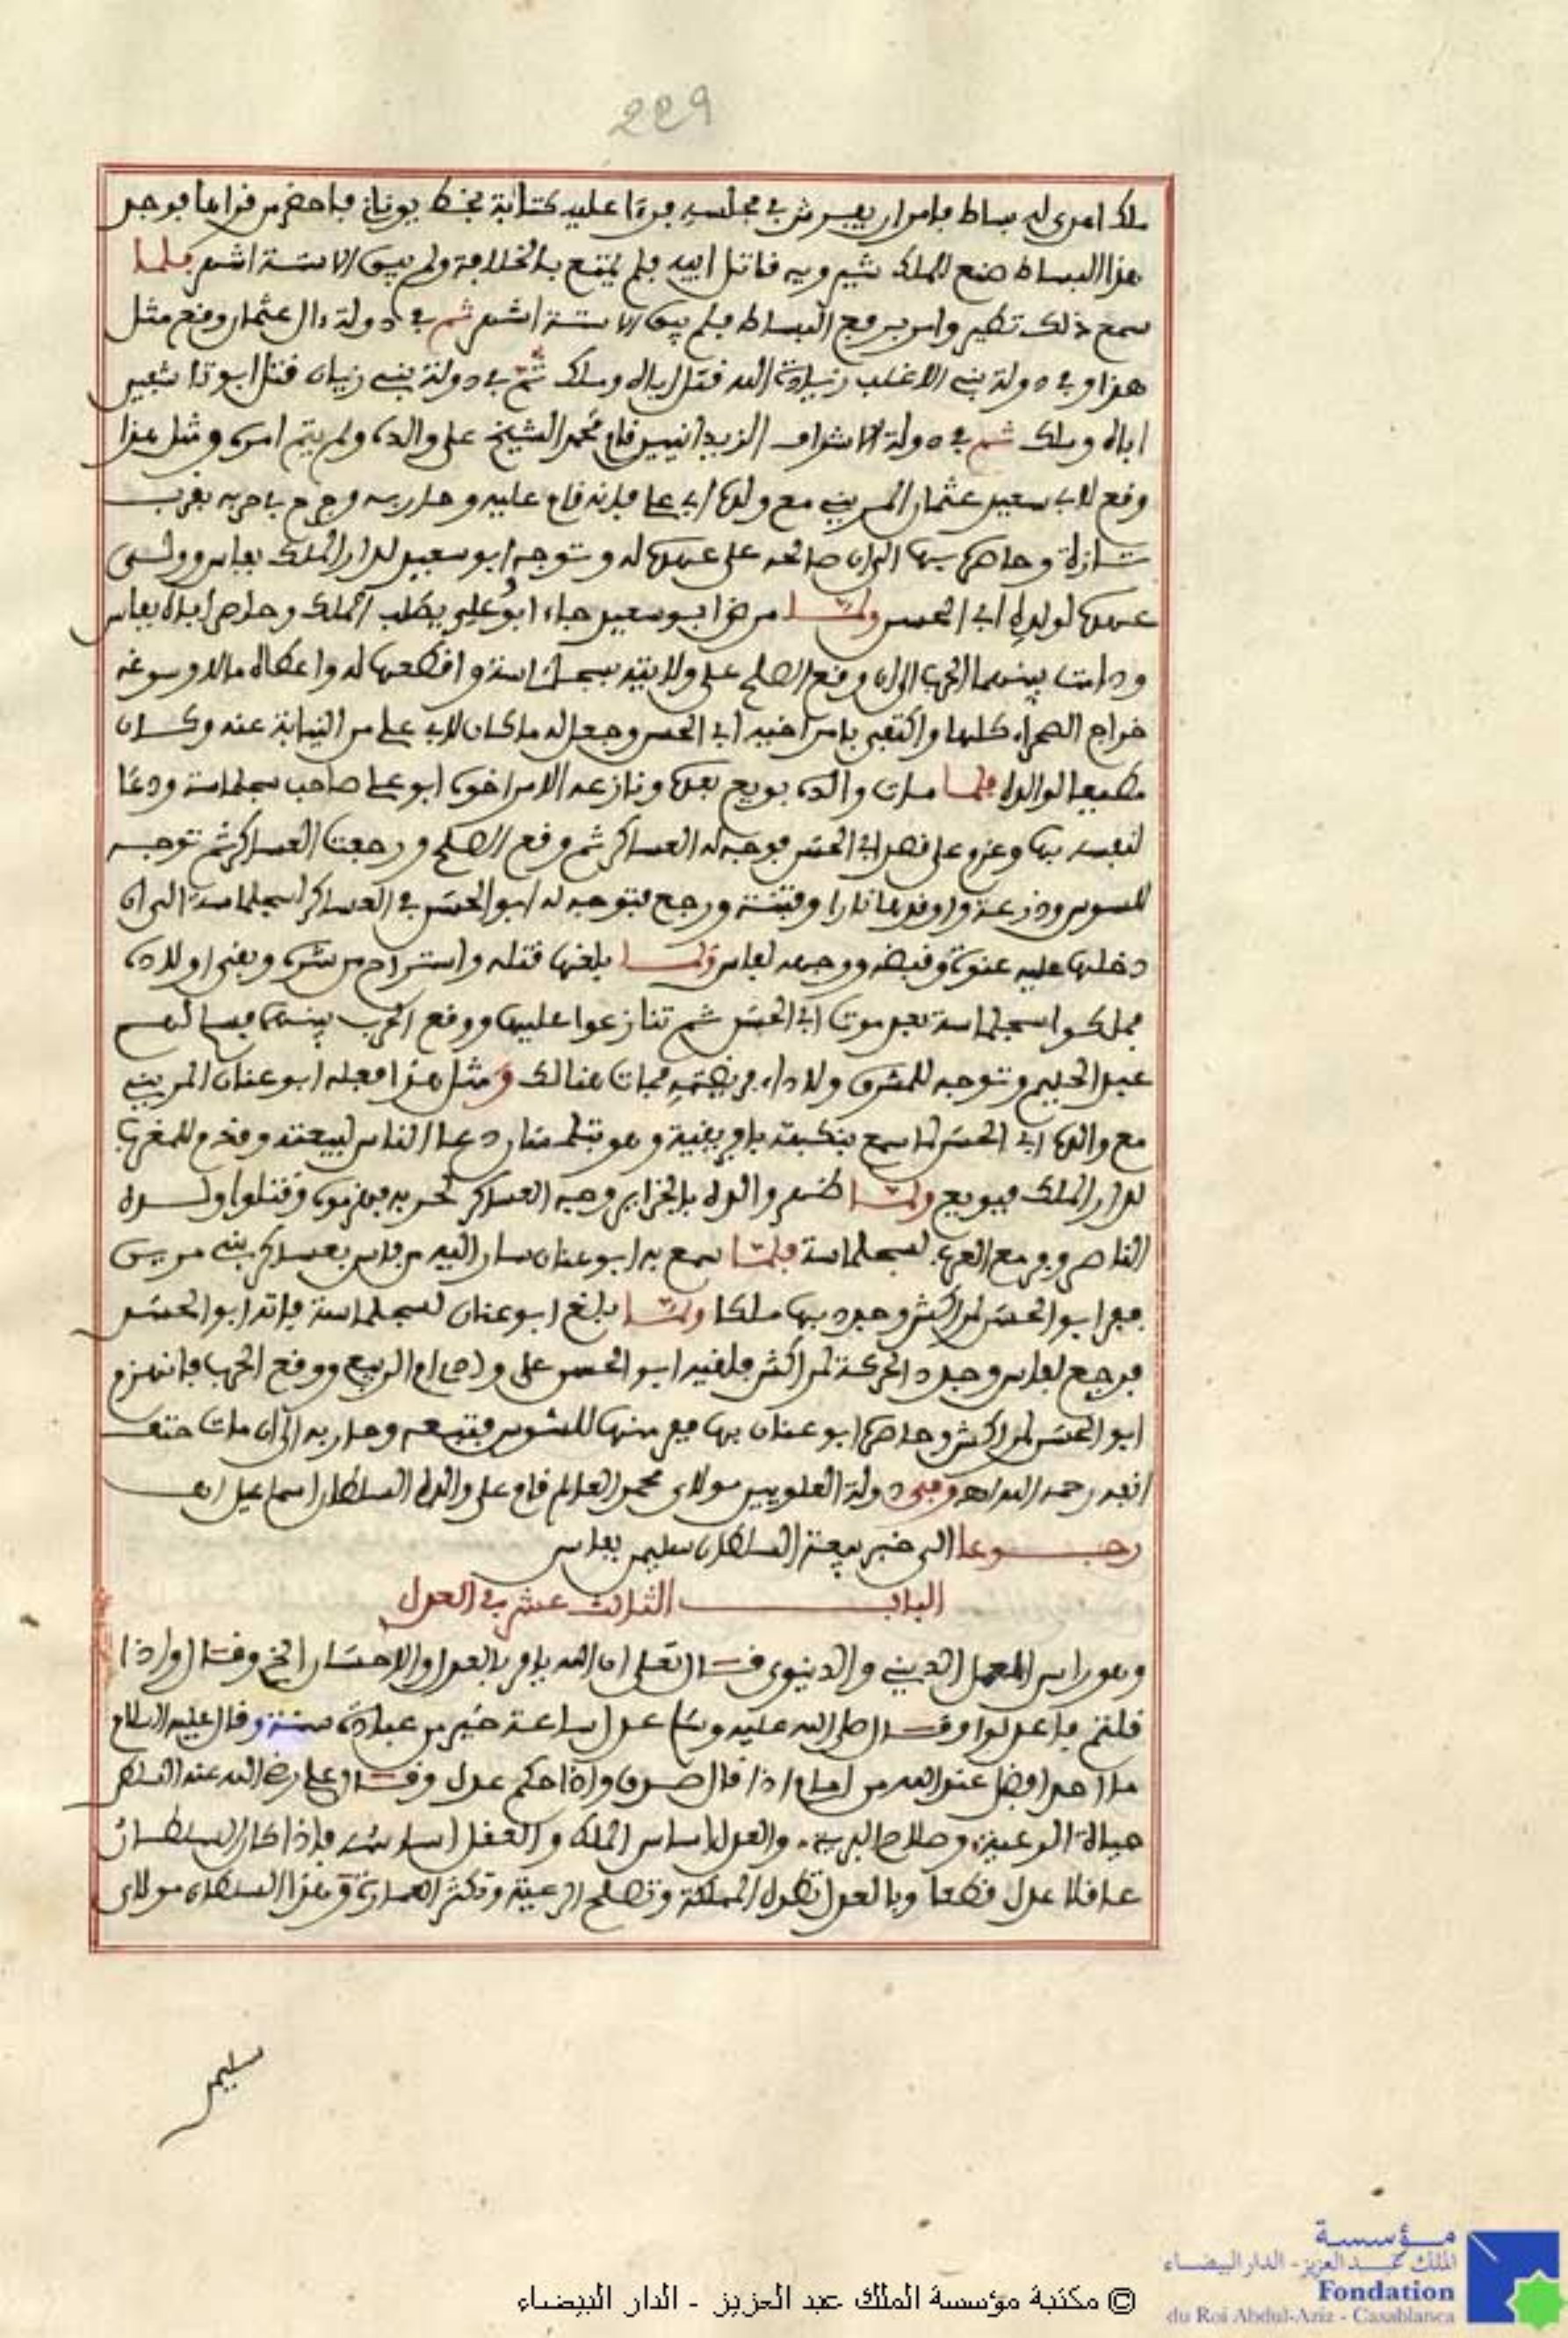 229
ملك اهدى له بساط فامر ان يفرش في مجلسه فرءا عليه كتابة بخط يوناني فاحضر من قراها فوجد
هذا البساط صنع للملك شيرويه قاتل ابيه فلم يمتع بالخلافة ولم يبق الا ستة اشهر فلما
سمع ذلك تطير وامر برفع البساط فلم يبق الا ستة اشهر ثم في دولة ءال عثمان وقع مثل
هذا وفي دولة بني الاغلب زيادة الله قتل اباه وملك ثم في دولة بني زيان قتل ابو تاشفين
اباه وملك ثم في دولة الاشراف الزيدانيين قام محمد الشيخ على والده ولم يتم امره ومثل هذا
وقع لابي سعيد عثمان المريني مع ولده ابي علي فانه قام عليه وحاربه وجرح في حربه بقرب
تازة وحاصره بها الى ان صالحه على عهده له وتوجه ابو سعيد لدار الملك بفاس وولى
عهده لولده ابي الحسن ولما مرض ابو سعيد جاء ابو علي يطلب الملك وحاصر اباه بفاس
ودامت بينهما الحرب الى ان وقع الصلح على ولايته بسجلماسة واقطعها له واعطاه مالا وسوغه
خراج الصحراء كلها واكتفى بامر اخيه ابي الحسن وجعل له ما كان لابي علي من النيابة عنه وكان
مطيعا لوالده فلما مات والده بويع بعده ونازعه الامر اخوه ابو علي صاحب سجلماسة ودعا
لنفسه بها وعزم على قصد ابي الحسن فوجه له العساكر ثم وقع الصلح ورجعت العساكر ثم توجه
للسوس ودرعة واوقدها نارا وفتنة ورجع فتوجه له ابو الحسن في العساكر لسجلماسة الى ان
دخلها عليه عنوة وقبضه ووجهه لفاس ولما بلغها قتله واستراح من شره وبقي اولاده
فملكوا سجلماسة بعد موت ابي الحسن ثم تنازعوا عليها ووقع الحرب بينهم فسالمهم
عبد الحليم وتوجه للمشرق ولاداء فريضته فمات هنالك ومثل هذا فعله ابو عنان المريني
مع والده ابي الحسن لما سمع بنكبته بافريقية وهو بتلمسان دعا الناس لبيعته وقدم للمغرب
لدار الملك فبويع ولما ظهر والده بالجزاير وجه العساكر لحربه فهزموه وقتلوا ولده
الناصر وفر مع العرب لسجلماسة فلما سمع به ابو عنان سار اليه من فاس بعساكر بني مرين
ففر ابو الحسن لمراكش وجدد بها ملكا ولما بلغ ابو عنان لسجلماسة فاته ابو الحسن
فرجع لفاس وجدد الحركة لمراكش فلقيه ابو الحسن على وادي ام الربيع ووقع الحرب فانهزم
ابو الحسن لمراكش وحاصره ابو عنان بها ففر منها للسوس فتبعه وحاربه الى ان مات حتف
انفه رحمه الله اهـ وفي دولة العلويين مولاي محمد العالم قام على والده السلطان اسماعيل
رجوعا الى خبر بيعة السلطان سليمن بفاس
الباب الثالث عشر في العدل
وهو راس العمل الديني والدنيوي قال تعلى ان الله يامر بالعدل والاحسان الخ وقال واذا
قلتم فاعدلوا وقال صلى الله عليه وسلم عدل ساعة خير من عبادة سنة وقال عليه السلام
ما احد افضل عند الله من امام اذا قال صدق واذا حكم عدل وقال علي رضي الله عنه السلطان
حياة الرعية وصلاح البرية، والعدل اساس الملك والعقل اساسه فاذا كان السلطان
عاقلا عدل قطعا وبالعدل تطول المملكة وتصلح الرعية وتكثر العمارة وهذا السلطان مولاي
سليمن
مؤسسة
الملك عبد العزيز - الدار البيضاء
Fondation
du Roi Abdul-Aziz - Casablanca
© مكتبة مؤسسة الملك عبد العزيز - الدار البيضاء